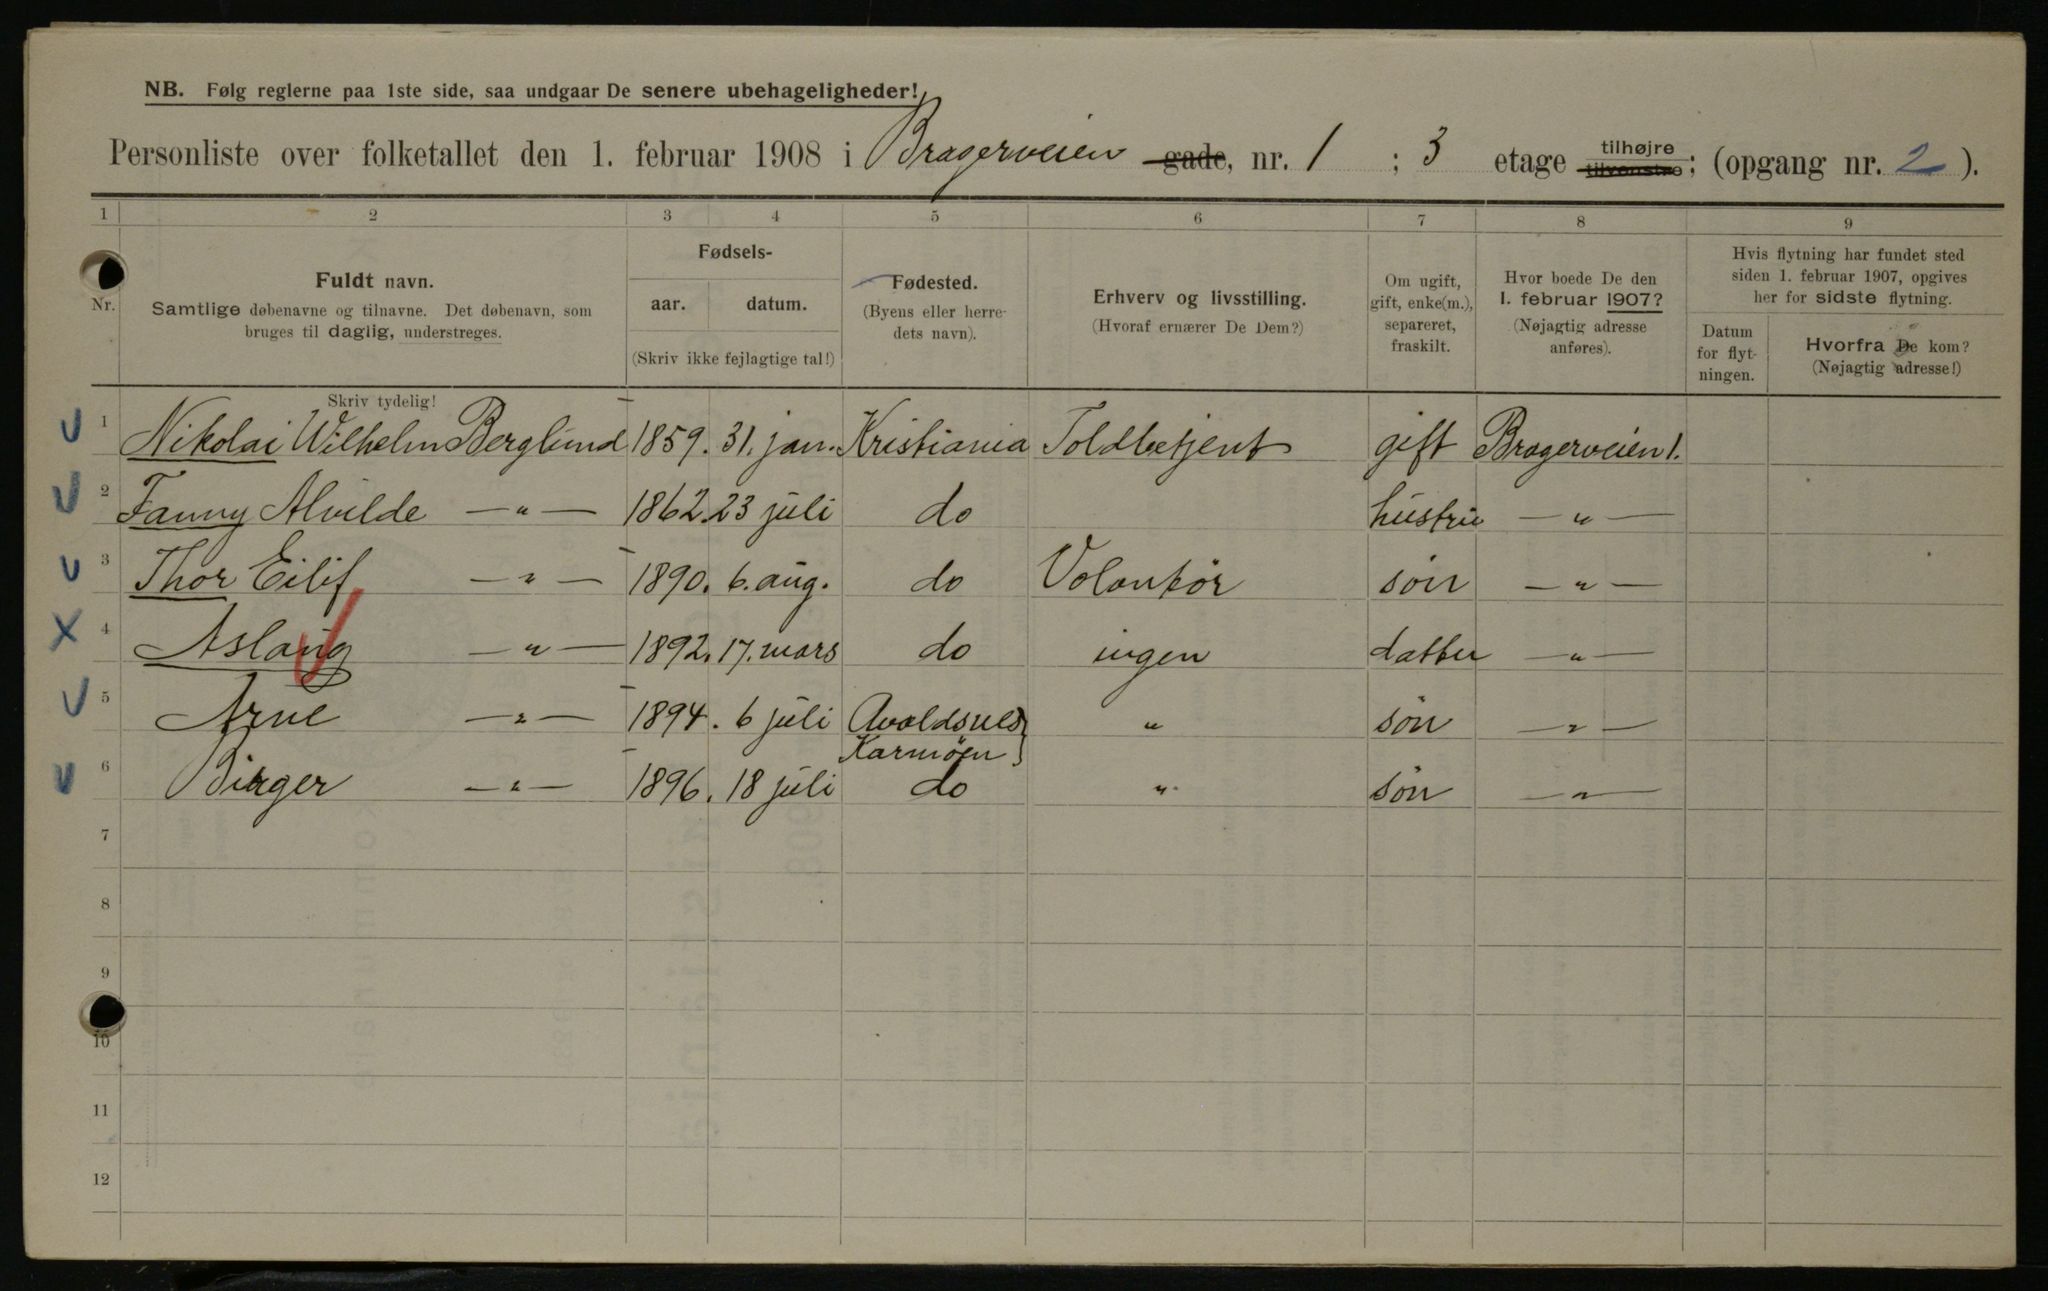 NB. Følg reglerne paa 1ste side, saa undgaar De senere ubehageligheder!
Personliste over folketallet den 1. februar 1908 i Bragerveien gade, nr. 1 ; 3 etage tilhøjre tilvenstre; (opgang nr. 2 ).
1 2 3 4 5 6 7 8 9
Nr.
Fuldt navn.
Samtlige døbenavne og tilnavne. Det døbenavn, som
bruges til daglig, understreges.
Skriv tydelig!
Fødsels-
aar. datum.
(Skriv ikke fejlagtige tal!)
Fødested.
(Byens eller herre-
dets navn).
Erhverv og livsstilling.
(Hvoraf ernærer De Dem?)
Om ugift,
gift, enke(m.),
separeret,
fraskilt.
Hvor boede De den
1. februar 1907?
(Nøjagtig adresse
anføres).
Hvis flytning har fundet sted
siden 1. februar 1907, opgives
her for sidste flytning.
Datum
for flyt-
ningen.
Hvorfra De kom?
(Nøjagtig adresse!)
1 Nikolai Wilhelm Berglund 1859. 31. jan. Kristiania Toldbetjent gift Bragerveien 1.
2 Fanny Alvilde — " — 1862. 23 juli do hustru — " —
3 Thor Eilif — " — 1890. 6. aug. do Volontör sön — " —
4 Aslaug — " — 1892. 17. mars do ingen datter — " —
5 Arne — " — 1894. 6 juli Avaldsnes " sön — " —
Karmöen
6 Birger — " — 1896. 18 juli do " sön — " —
7
8
9
10
11
12